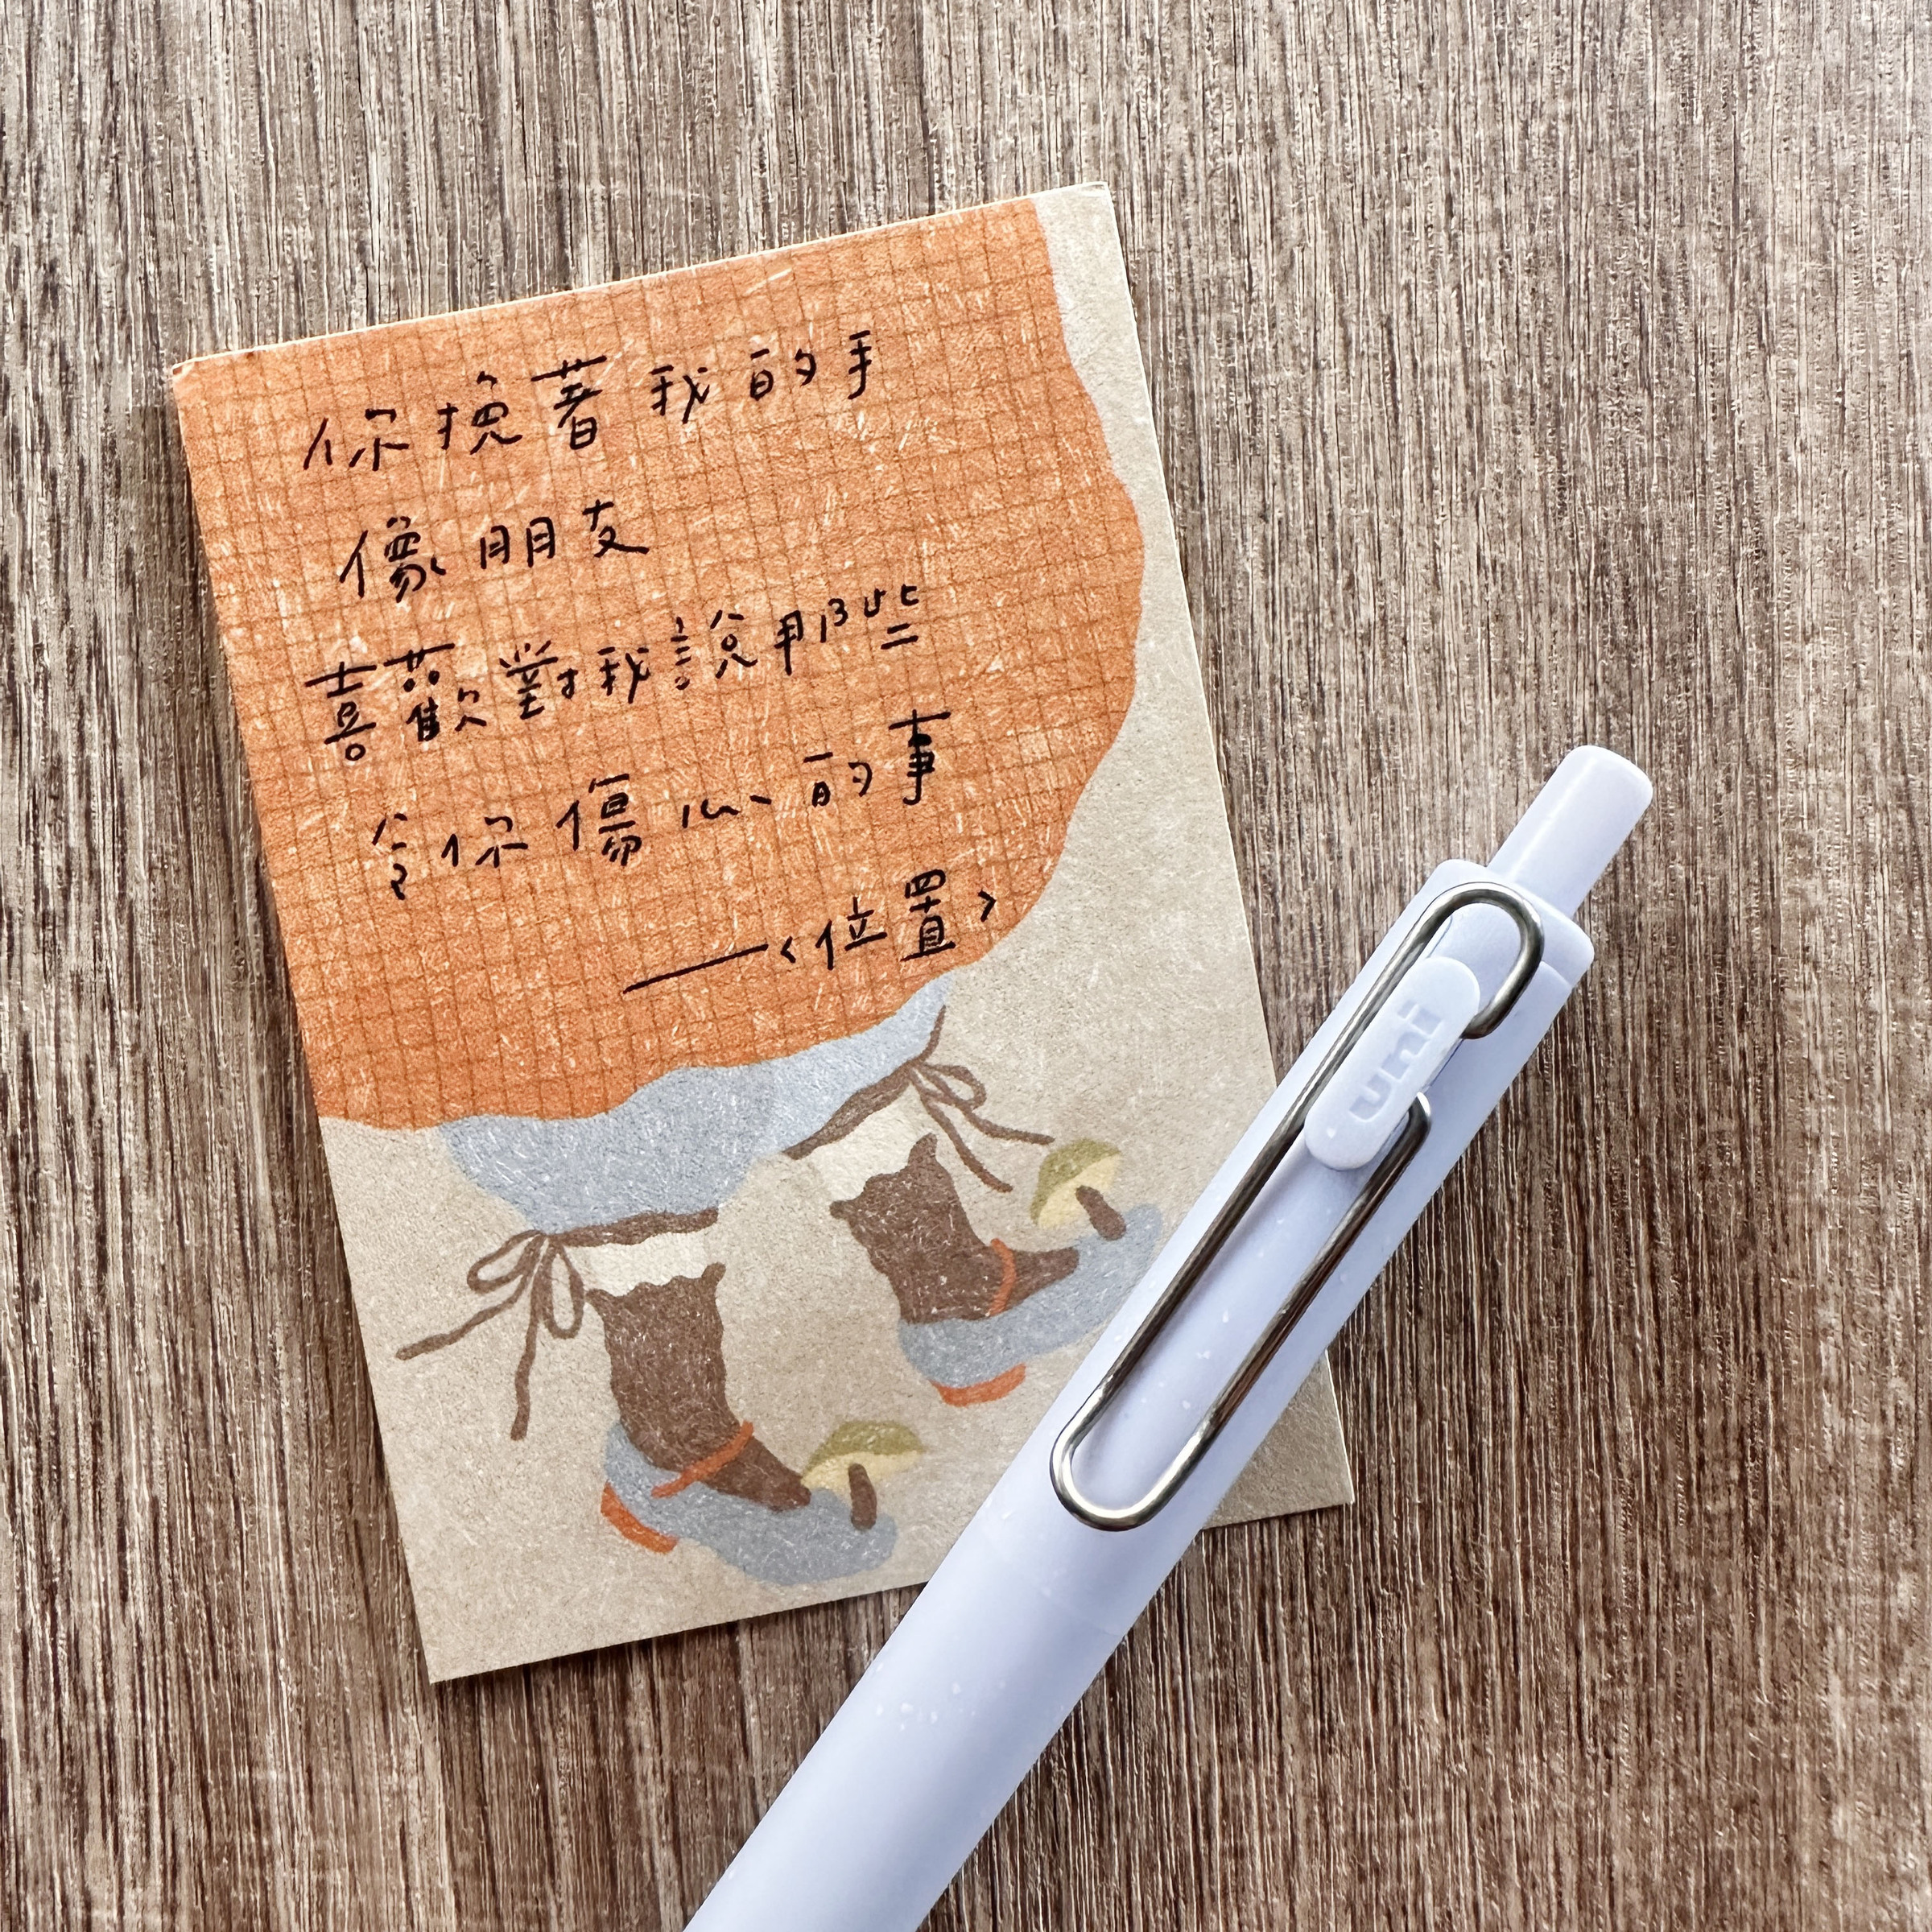 你挽著我的手
像朋友
喜歡對我說那些
令你傷心的事
——<位置>
uni